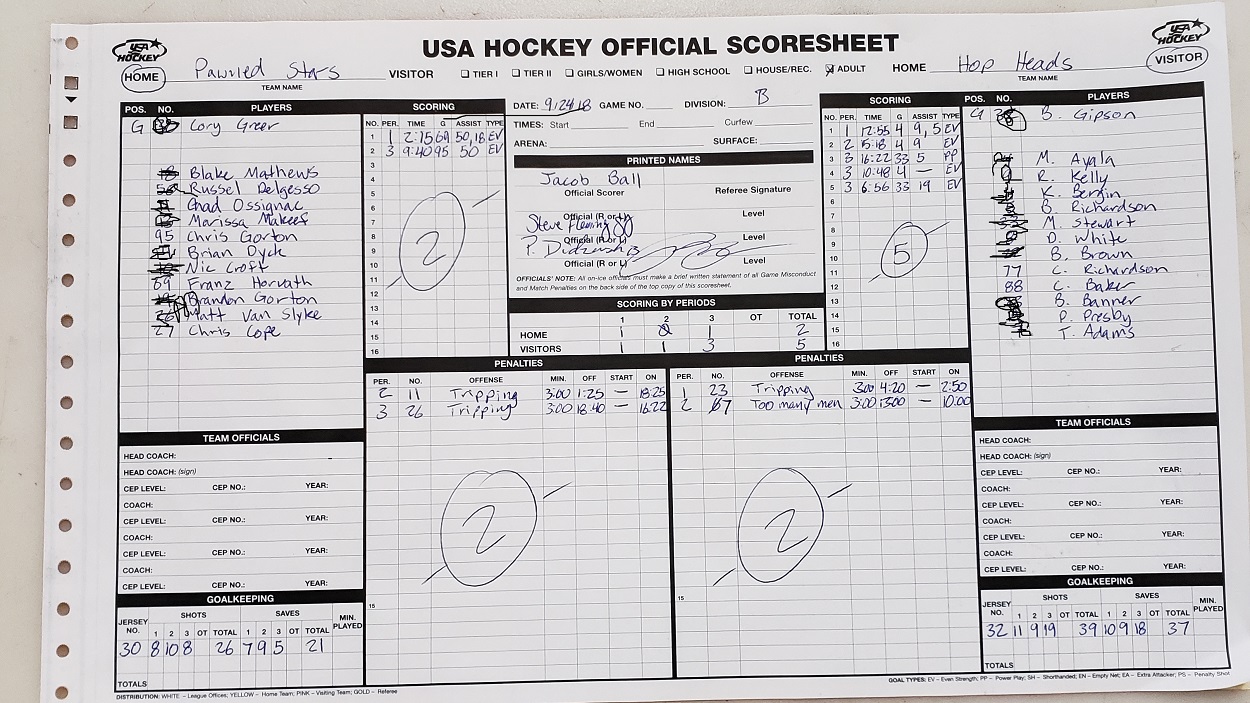 USA HOCKEY OFFICIAL SCORESHEET
USA HOCKEY
USA HOCKEY
HOME Pawned Stars VISITOR
TEAM NAME
TIER I TIER II GIRLS/WOMEN HIGH SCHOOL HOUSE/REC. ADULT
HOME Hop Heads VISITOR
TEAM NAME
POS. NO. PLAYERS
G Cory Greer
Blake Mathews
Russel Delgesso
Chad Ossignac
Marissa
95 Chris Gorton
Brian Dyck
Nic Croft
69 Franz Horvath
Brandon Gorton
Matt Van Slyke
27 Chris Cope
SCORING
NO. PER. TIME G ASSIST TYPE
1 1 2:15 69 50,18 EV
2 3 9:40 95 50 EV
3
4
5
6
7
8
9
10
11
12
13
14
15
16
2
DATE: 9/24/18 GAME NO. DIVISION: B
TIMES: Start End Curfew
ARENA: SURFACE:
PRINTED NAMES
Jacob Ball
Official Scorer Referee Signature
Steve Fleming
Official (R or L) Level
P.
Official (R or L) Level
Official (R or L) Level
OFFICIALS' NOTE: All on-ice officials must make a brief written statement of all Game Misconduct
and Match Penalties on the back side of the top copy of this scoresheet.
SCORING BY PERIODS
1 2 3 OT TOTAL
HOME 1 0 1 2
VISITORS 1 1 3 5
SCORING
NO. PER. TIME G ASSIST TYPE
1 1 12:55 4 9, 5 EV
2 2 5:18 4 9 EV
3 3 16:22 33 5 PP
4 3 10:48 4 — EV
5 3 6:56 33 19 EV
6
7
8
9
10
11
12
13
14
15
16
5
POS. NO. PLAYERS
G B. Gipson
M. Ayala
R. Kelly
K. Bergin
B. Richardson
M. Stewart
D. White
B. Brown
77 C. Richardson
88 C. Baker
B. Banner
P. Presby
T. Adams
PENALTIES
PER. NO. OFFENSE MIN. OFF START ON
2 11 Tripping 3:00 1:25 — 18:25
3 26 Tripping 3:00 18:40 — 16:22
2
15
PENALTIES
PER. NO. OFFENSE MIN. OFF START ON
1 23 Tripping 3:00 4:20 — 2:50
2 67 Too many men 3:00 13:00 — 10:00
2
15
TEAM OFFICIALS
HEAD COACH:
HEAD COACH: (sign)
CEP LEVEL: CEP NO.: YEAR:
COACH:
CEP LEVEL: CEP NO.: YEAR:
COACH:
CEP LEVEL: CEP NO.: YEAR:
COACH:
CEP LEVEL: CEP NO.: YEAR:
GOALKEEPING
SHOTS SAVES
JERSEY NO. 1 2 3 OT TOTAL 1 2 3 OT TOTAL MIN. PLAYED
30 8 10 8 26 7 9 5 21
TOTALS
TEAM OFFICIALS
HEAD COACH:
HEAD COACH: (sign)
CEP LEVEL: CEP NO.: YEAR:
COACH:
CEP LEVEL: CEP NO.: YEAR:
COACH:
CEP LEVEL: CEP NO.: YEAR:
COACH:
CEP LEVEL: CEP NO.: YEAR:
GOALKEEPING
SHOTS SAVES
JERSEY NO. 1 2 3 OT TOTAL 1 2 3 OT TOTAL MIN. PLAYED
32 11 9 19 39 10 9 18 37
TOTALS
DISTRIBUTION: WHITE – League Offices; YELLOW – Home Team; PINK – Visiting Team; GOLD – Referee
GOAL TYPES: EV – Even Strength; PP – Power Play; SH – Shorthanded; EN – Empty Net; EA – Extra Attacker; PS – Penalty Shot